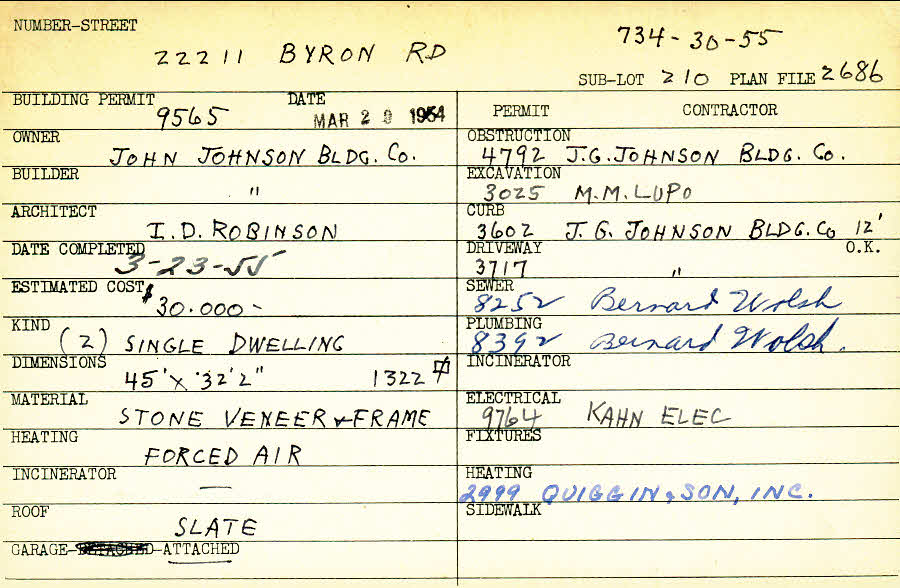 NUMBER-STREET
22211 BYRON RD
734-30-55
SUB-LOT 210 PLAN FILE 2686
BUILDING PERMIT DATE
9565 MAR 29 1954
OWNER
JOHN JOHNSON BLDG. Co.
BUILDER
"
ARCHITECT
I.D. ROBINSON
DATE COMPLETED
3-23-55
ESTIMATED COST
$30.000-
KIND
(2) SINGLE DWELLING
DIMENSIONS
45' x 32'2" 1322
MATERIAL
STONE VENEER & FRAME
HEATING
FORCED AIR
INCINERATOR
—
ROOF
SLATE
GARAGE-DETACHED-ATTACHED
PERMIT CONTRACTOR
OBSTRUCTION
4792 J.G. JOHNSON BLDG. Co.
EXCAVATION
3025 M.M. LUPO
CURB
3602 J.G. JOHNSON BLDG. Co 12'
DRIVEWAY O.K.
3717 "
SEWER
8252 Bernard Wolsh
PLUMBING
8392 Bernard Wolsh.
INCINERATOR
ELECTRICAL
9764 KAHN ELEC
FIXTURES
HEATING
2999 QUIGGIN & SON, INC.
SIDEWALK